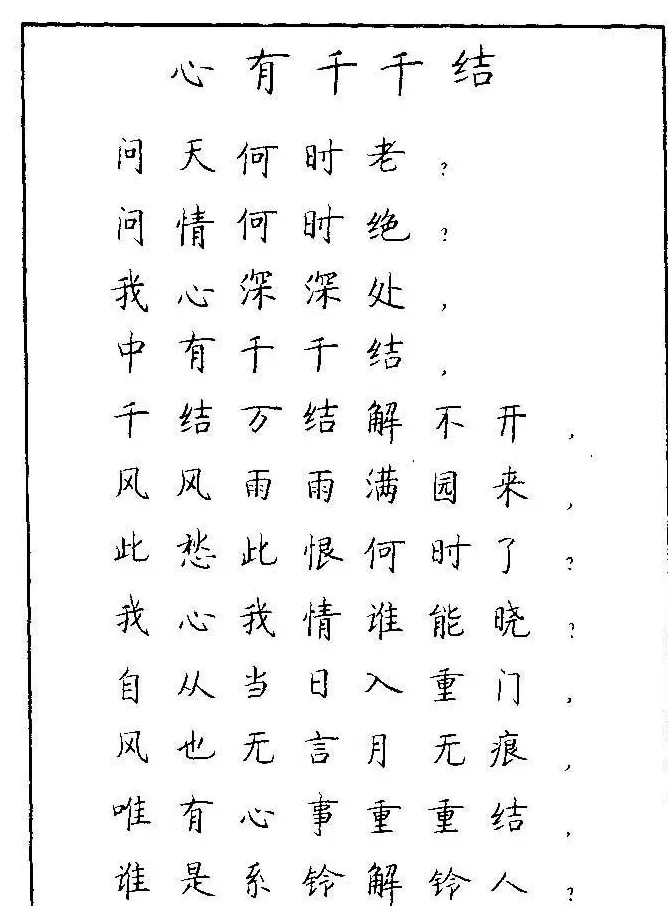 心有千千结
问天何时老?
问情何时绝?
我心深深处,
中有千千结,
千结万结解不开,
风风雨雨满园来,
此愁此恨何时了?
我心我情谁能晓?
自从当日入重门,
风也无言月无痕,
唯有心事重重结,
谁是系铃解铃人?